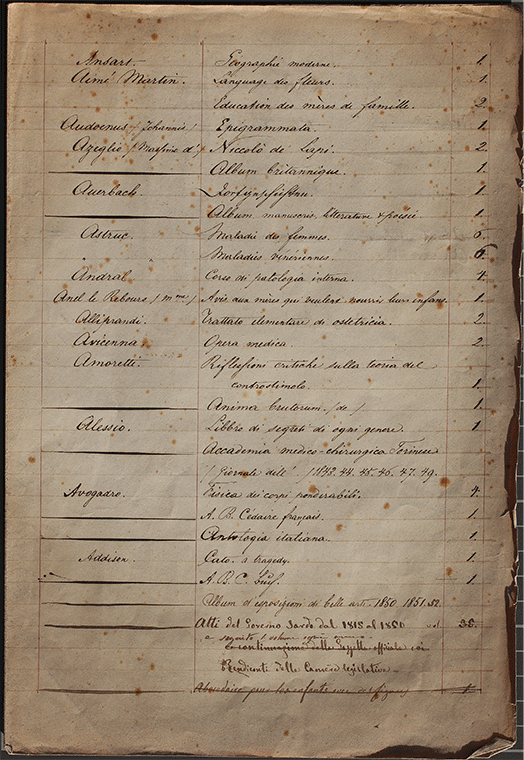 Ansart. Geographie moderne. 1.
Aimé Martin. Language des fleurs. 1.
Education des mères de famille. 2.
Audoenus (Johannis) Epigrammata. 1.
Azeglio (Massimo d') Niccolò de Lapi. 2.
Album britannique. 1.
Auerbach. 1.
Album, manuscris, litterature & poésie 1.
Astruc. Maladie des femmes. 6.
Maladies vénériennes. 6.
Andral. Corso di patologia interna. 4.
Anel le Rebours (Mme) Avis aux mères qui veulent nourrir leurs enfans. 1.
Alliprandi. Trattato elementare di ostetricia. 2.
Avicenna. Opera medica. 2.
Amoretti. Riflessioni critiche sulla teoria del
controstimolo. 1.
Anima brutorum (de) 1.
Alessio. Libbro di segreti di ogni genere. 1.
Accademia medico-chirurgica Torinese
(Giornale dell') 1842. 44. 45. 46. 47. 49.
Avogadro. Fisica dei corpi ponderabili. 4.
A. B. Cédaire français. 1.
Antologia italiana. 1.
Addison. Cato. a tragedy. 1.
A. B. C. 1.
Album d'esposizioni di belle arti. 1850. 1851. 52.
Atti del Governo Sardo dal 1815 al 1850 vol. 38.
a
continuazione della Gazzetta officiale coi
Rendiconti delle Camere legislative
Abecedaire pour les enfants avec des figures 1